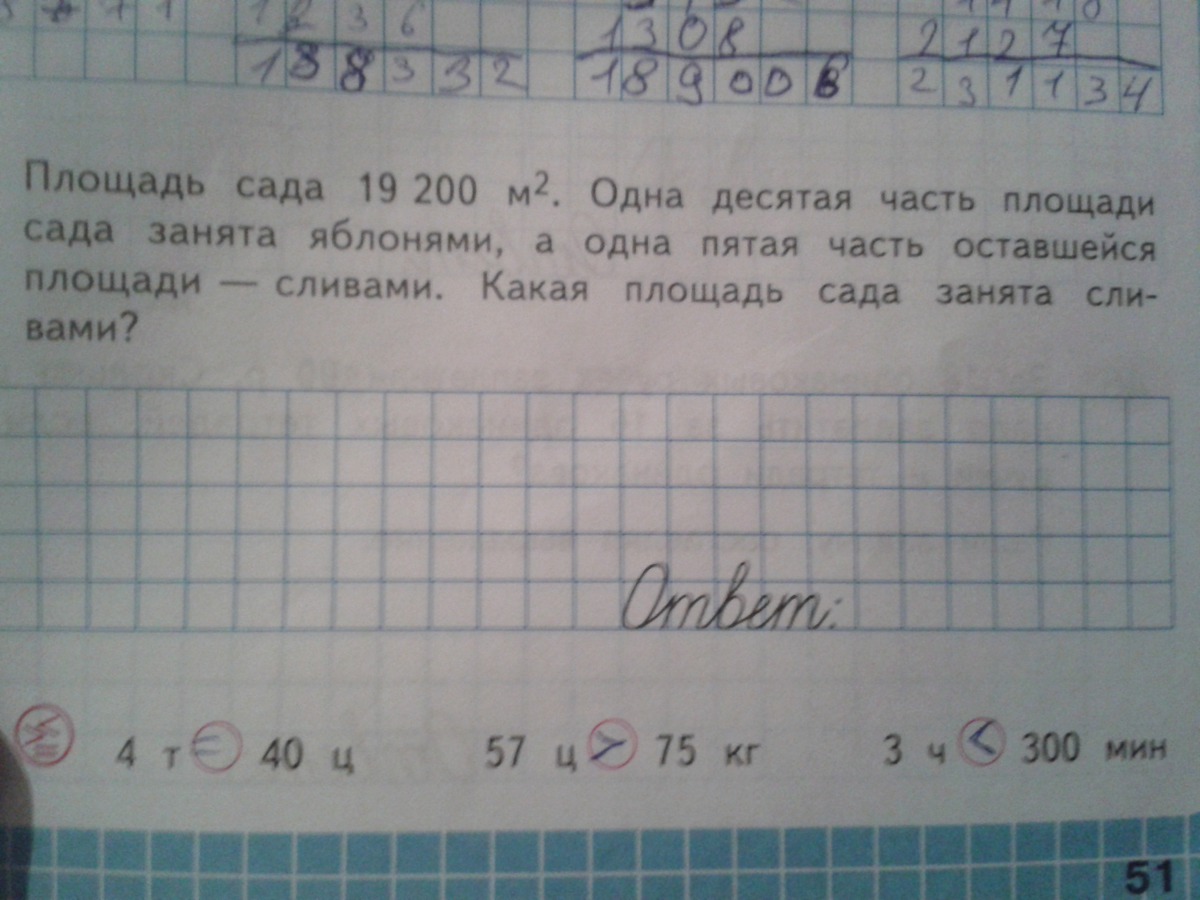 1 2 3 6
1 3 0 8
2 1 2 7
1 8 8 3 3 2
1 8 9 0 0 6
2 3 1 1 3 4
Площадь сада 19 200 м². Одна десятая часть площади
сада занята яблонями, а одна пятая часть оставшейся
площади — сливами. Какая площадь сада занята сли-
вами?
Ответ:
4 т = 40 ц 57 ц > 75 кг 3 ч < 300 мин
51